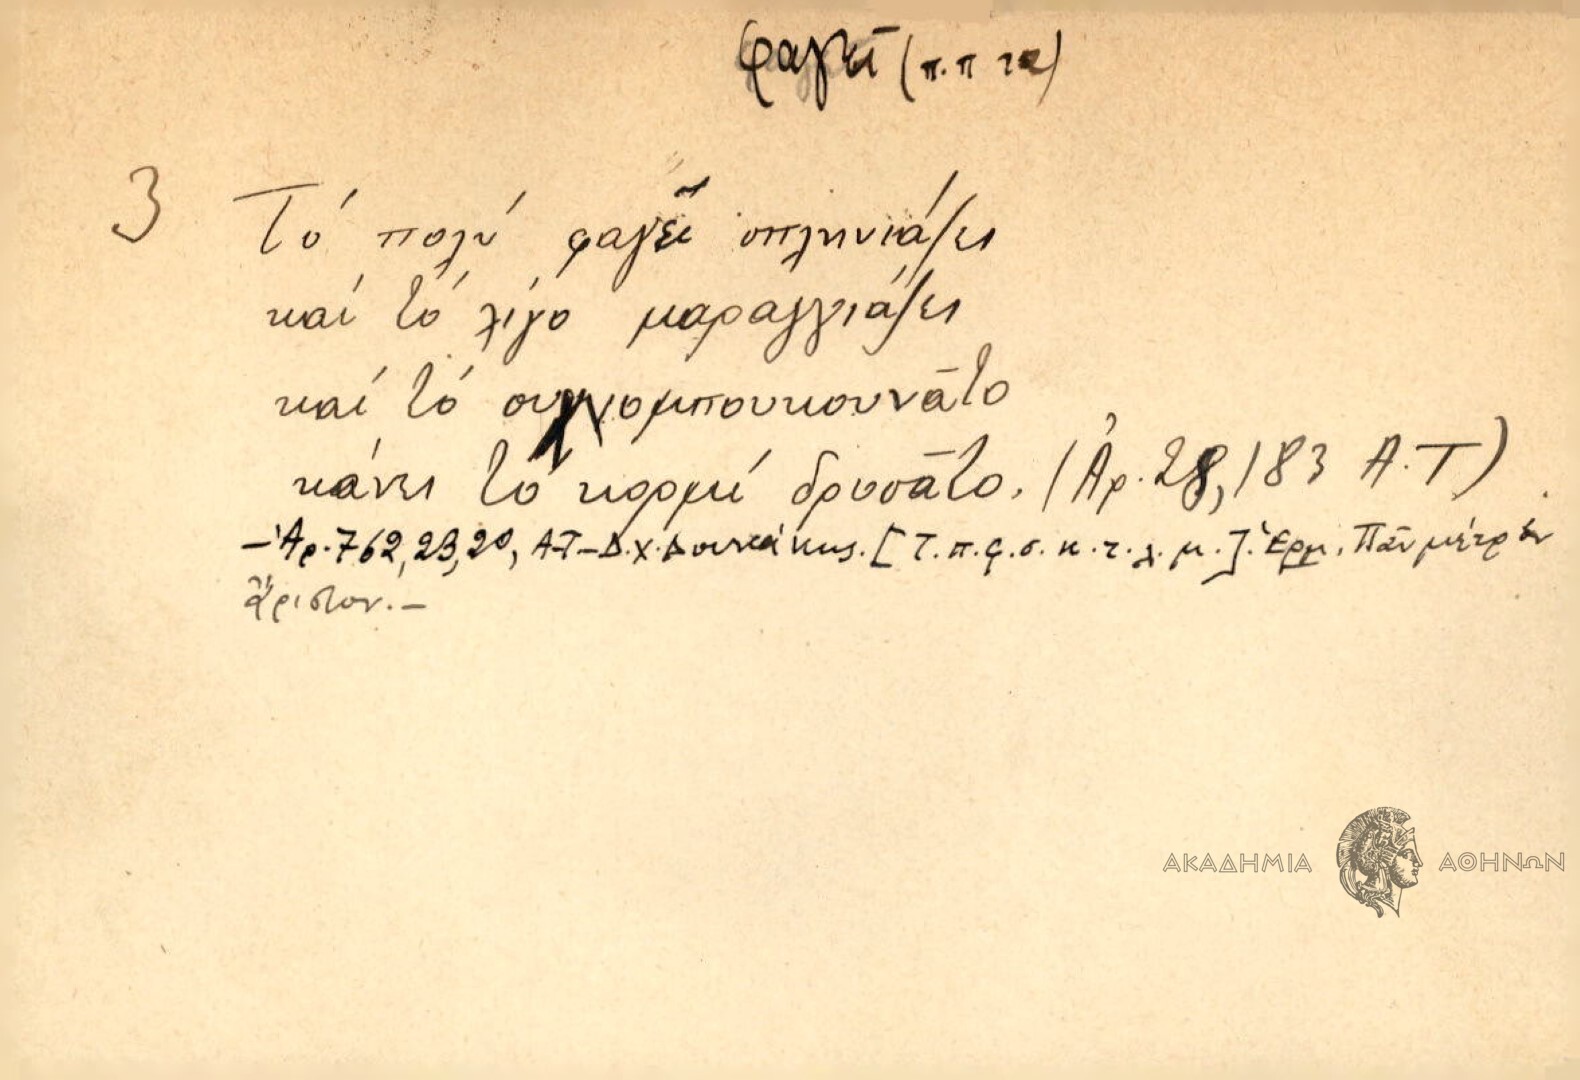 φαγεῖ (π.π τα)
3 Τό πολύ φαγεῖ σπληνιάζει
καί τό λίγο μαραγγιάζει
καί τό συχνομπουκουνᾶτο
κάνει τό κορμί δροσᾶτο. (Ἀρ. 28, 183 Α.Τ)
– Ἀρ. 762, 23, 20, Α-Τ – Δ.Χ. Δουκάκης. [Τ. π. φ. σ. κ. τ. λ. μ.]. Ἑρμ. Πᾶν μέτρον
ἄριστον. –
ΑΚΑΔΗΜΙΑ ΑΘΗΝΩΝ